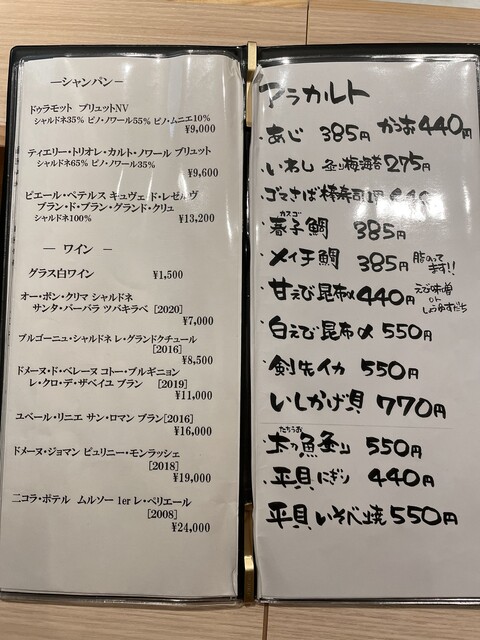 ―シャンパン－
ドゥラモット ブリュットNV
シャルドネ35% ピノ・ノワール55% ピノ・ムニエ10%
¥9,000
ティエリー・トリオレ・カルト・ノワール ブリュット
シャルドネ65% ピノ・ノワール35%
¥9,600
ピエール・ペテルス キュヴェ ド・レゼルヴ
ブラン・ド・ブラン・グランド・クリュ
シャルドネ100%
¥13,200
― ワイン ―
グラス白ワイン ¥1,500
オー・ボン・クリマ シャルドネ
サンタ・バーバラ ツバキラベ [2020]
¥7,000
ブルゴーニュ・シャルドネ レ・グランドクチュール
[2016]
¥8,500
ドメーヌ・ド・ベレーヌ コトー・ブルギニョン
レ・クロ・デ・ザベイユ ブラン [2019]
¥11,000
ユベール・リニエ サン・ロマン ブラン[2016]
¥16,000
ドメーヌ・ジョマン ピュリニー・モンラッシェ
[2018]
¥19,000
ニコラ・ポテル ムルソー 1er レ・ペリエール
[2008]
¥24,000
アラカルト
・あじ 385円 かつお440円
・いわし 梅海苔 275円
・ゴマさば棒寿司1円
・春子鯛 385円
カスゴ
・メイチ鯛 385円 脂のってます!!
・甘えび昆布〆 440円 えび味噌 or しょうゆすだち
・白えび昆布〆 550円
・剣先イカ 550円
・いしかげ貝 770円
たちうお
・太刀魚炙り 550円
・平貝にぎり 440円
・平貝いそべ焼 550円